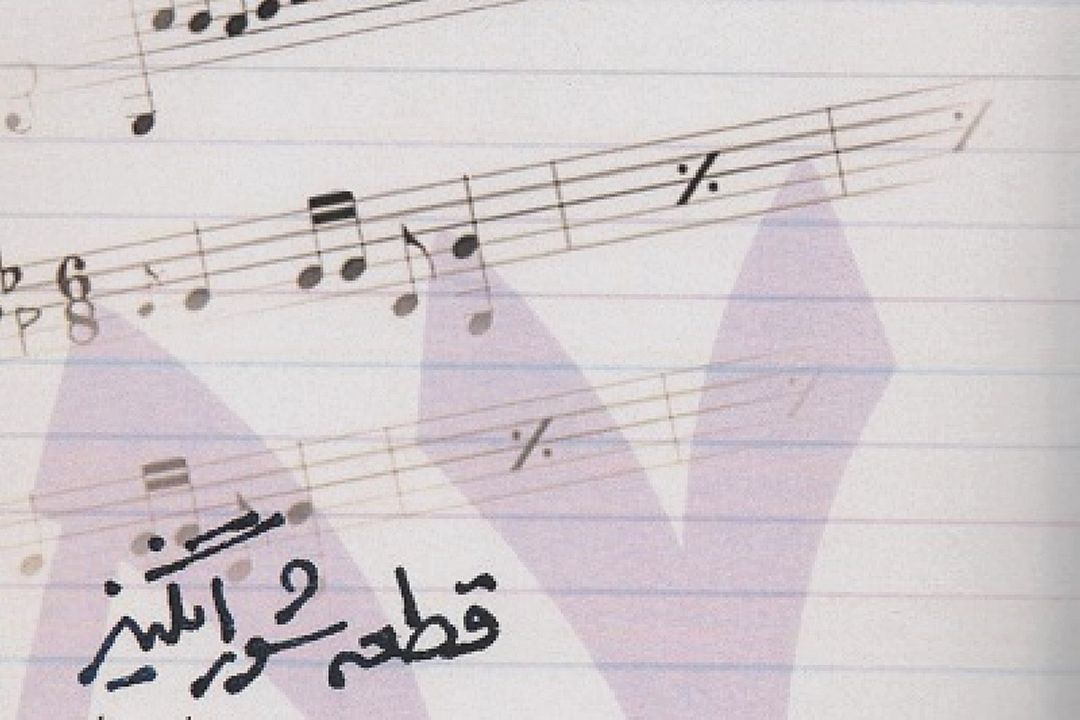 6
8
قطعه شورانگیز